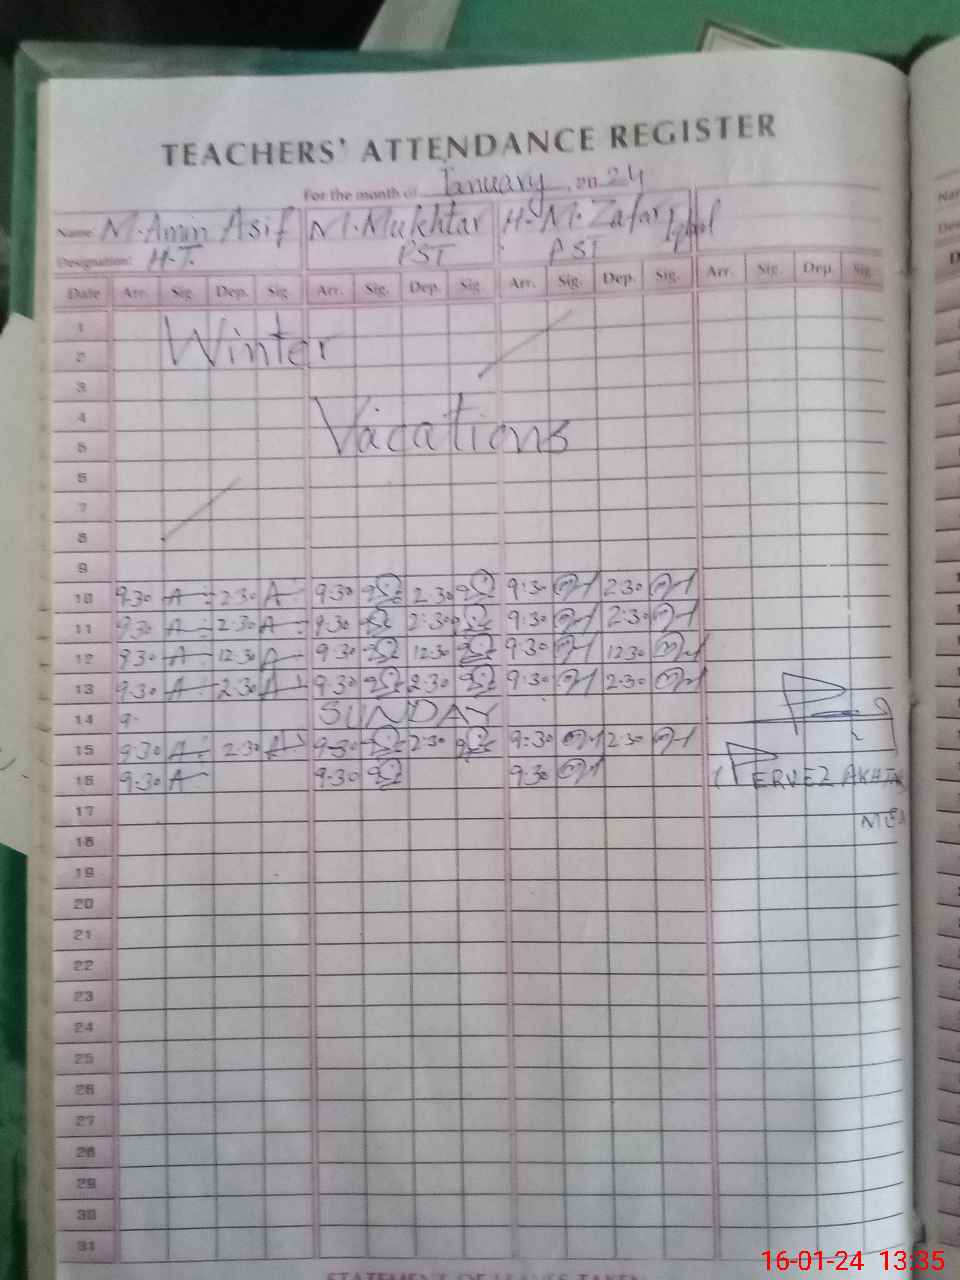 TEACHERS' ATTENDANCE REGISTER
For the month of January, 2024
Name: M. Amin Asif M. Mukhtar H. M. Zafar Iqbal
Designation: H.T. PST PST
Date Arr. Sig. Dep. Sig. Arr. Sig. Dep. Sig. Arr. Sig. Dep. Sig. Arr. Sig. Dep. Sig.
1
2 Winter
3
4
5 Vacations
6
7
8
9
10 9.30 A 2.30 A 9.30 2.30 9.30 2.30
11 9.30 A 2.30 A 9.30 2.30 9.30 2.30
12 9.30 A 12.30 A 9.30 12.30 9.30 12.30
13 9.30 A 2.30 A 9.30 2.30 9.30 2.30
14 9. SUNDAY
15 9.30 A 2.30 A 9.30 2.30 9.30 2.30
16 9.30 A 9.30 9.30 (PERVEZ AKHTAR
17 MEA
18
19
20
21
22
23
24
25
26
27
28
29
30
31
STATEMENT OF LEAVES TAKEN
16-01-24 13:35